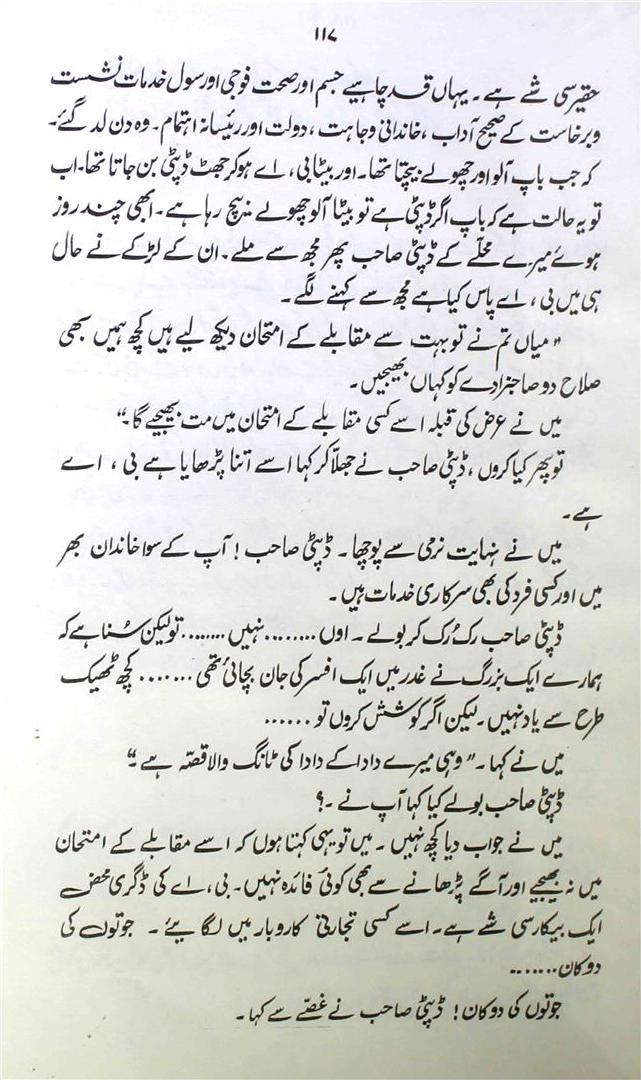 ۱۱۷
حقیر سی شے ہے۔ یہاں قد چاہیے جسم اور صحت فوجی اور سول خدمات نشست
و برخاست کے صحیح آداب، خاندانی وجاہت، دولت اور رئیسانہ اہتمام۔ وہ دن لد گئے۔
کہ جب باپ آلو اور چھولے بیچتا تھا۔ اور بیٹا بی، اے ہو کر جھٹ ڈپٹی بن جاتا تھا۔ اب
تو یہ حالت ہے کہ باپ اگر ڈپٹی ہے تو بیٹا آلو چھولے بیچ رہا ہے۔ ابھی چند روز
ہوئے میرے محلّے کے ڈپٹی صاحب پھر مجھ سے ملے۔ ان کے لڑکے نے حال
ہی میں بی، اے پاس کیا ہے مجھ سے کہنے لگے۔
"میاں تم نے تو بہت سے مقابلے کے امتحان دیکھ لیے ہیں کچھ ہمیں بھی
صلاح دو صاحبزادے کو کہاں بھیجیں۔
میں نے عرض کی قبلہ اسے کسی مقابلے کے امتحان میں مت بھیجیے گا۔"
تو پھر کیا کروں، ڈپٹی صاحب نے جھلّا کر کہا اسے اتنا پڑھایا ہے بی، اے
ہے۔
میں نے نہایت نرمی سے پوچھا۔ ڈپٹی صاحب! آپ کے سوا خاندان بھر
میں اور کسی فرد کی بھی سرکاری خدمات ہیں۔
ڈپٹی صاحب رک رُک کر بولے۔ اوں ........ نہیں ....... تو لیکن سُنا ہے کہ
ہمارے ایک بزرگ نے غدر میں ایک افسر کی جان بچائی تھی ....... کچھ ٹھیک
طرح سے یاد نہیں۔ لیکن اگر کوشش کروں تو ......
میں نے کہا۔ "وہی میرے دادا کے دادا کی ٹانگ والا قصّہ ہے۔"
ڈپٹی صاحب بولے کیا کہا آپ نے۔؟
میں نے جواب دیا کچھ نہیں۔ میں تو یہی کہتا ہوں کہ اسے مقابلے کے امتحان
میں نہ بھیجیے اور آگے پڑھانے سے بھی کوئی فائدہ نہیں۔ بی، اے کی ڈگری محض
ایک بیکار سی شے ہے۔ اسے کسی تجارتی کاروبار میں لگایئے۔ جوتوں کی
دوکان .......
جوتوں کی دوکان! ڈپٹی صاحب نے غصّے سے کہا۔